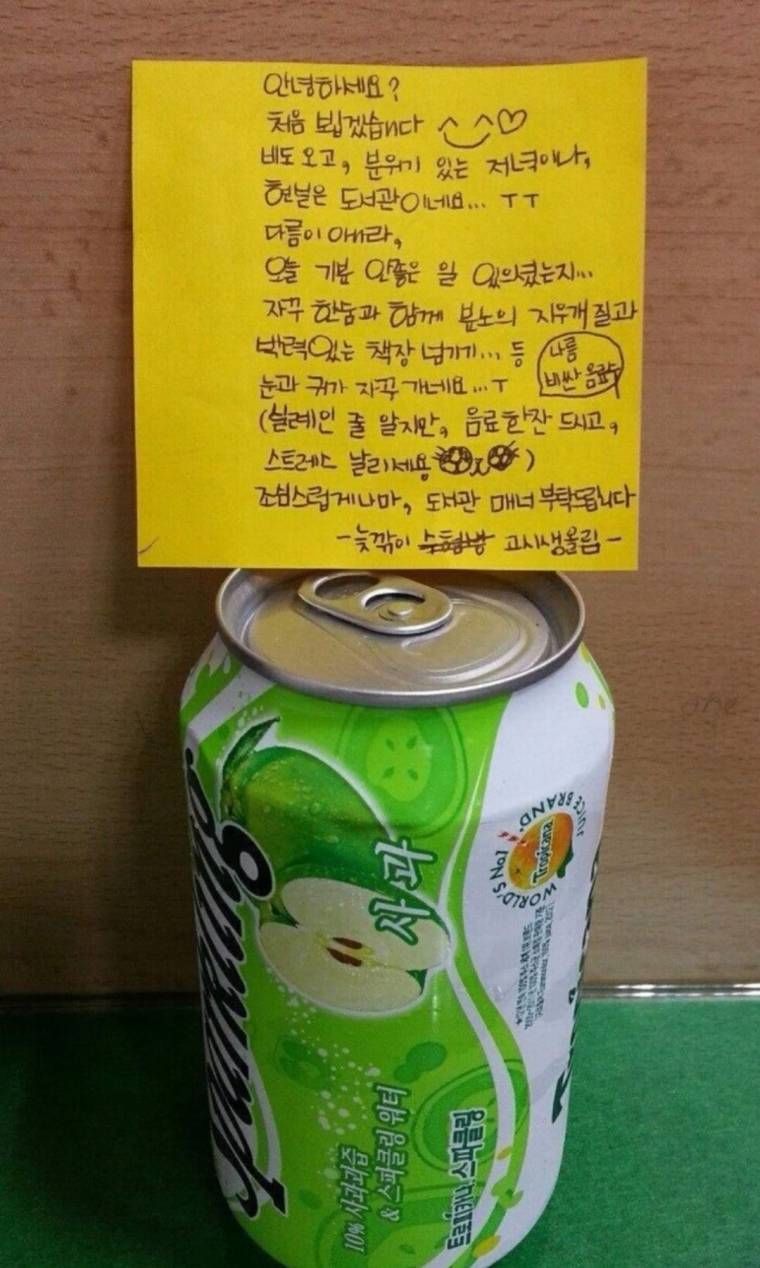 안녕하세요?
처음 뵙겠습니다 ^_^♡
비도 오고, 분위기 있는 저녁이나,
현실은 도서관이네요... ㅜㅜ
다름이 아니라,
오늘 기분 안좋은 일 있으셨는지...
자꾸 한숨과 함께 분노의 지우개질과
박력있는 책장 넘기기... 등
나름
비싼 음료수
눈과 귀가 자꾸 가네요...ㅜ
(실례인 줄 알지만, 음료한잔 드시고,
스트레스 날리세용)
조심스럽게나마, 도서관 매너 부탁드립니다
-늦깎이 고시생올림-
Sparkling
사과
WORLD'S No.1 JUICE BRAND.
Tropicana
10% 사과과즙
& 스파클링 워터
트로피카나 스파클링